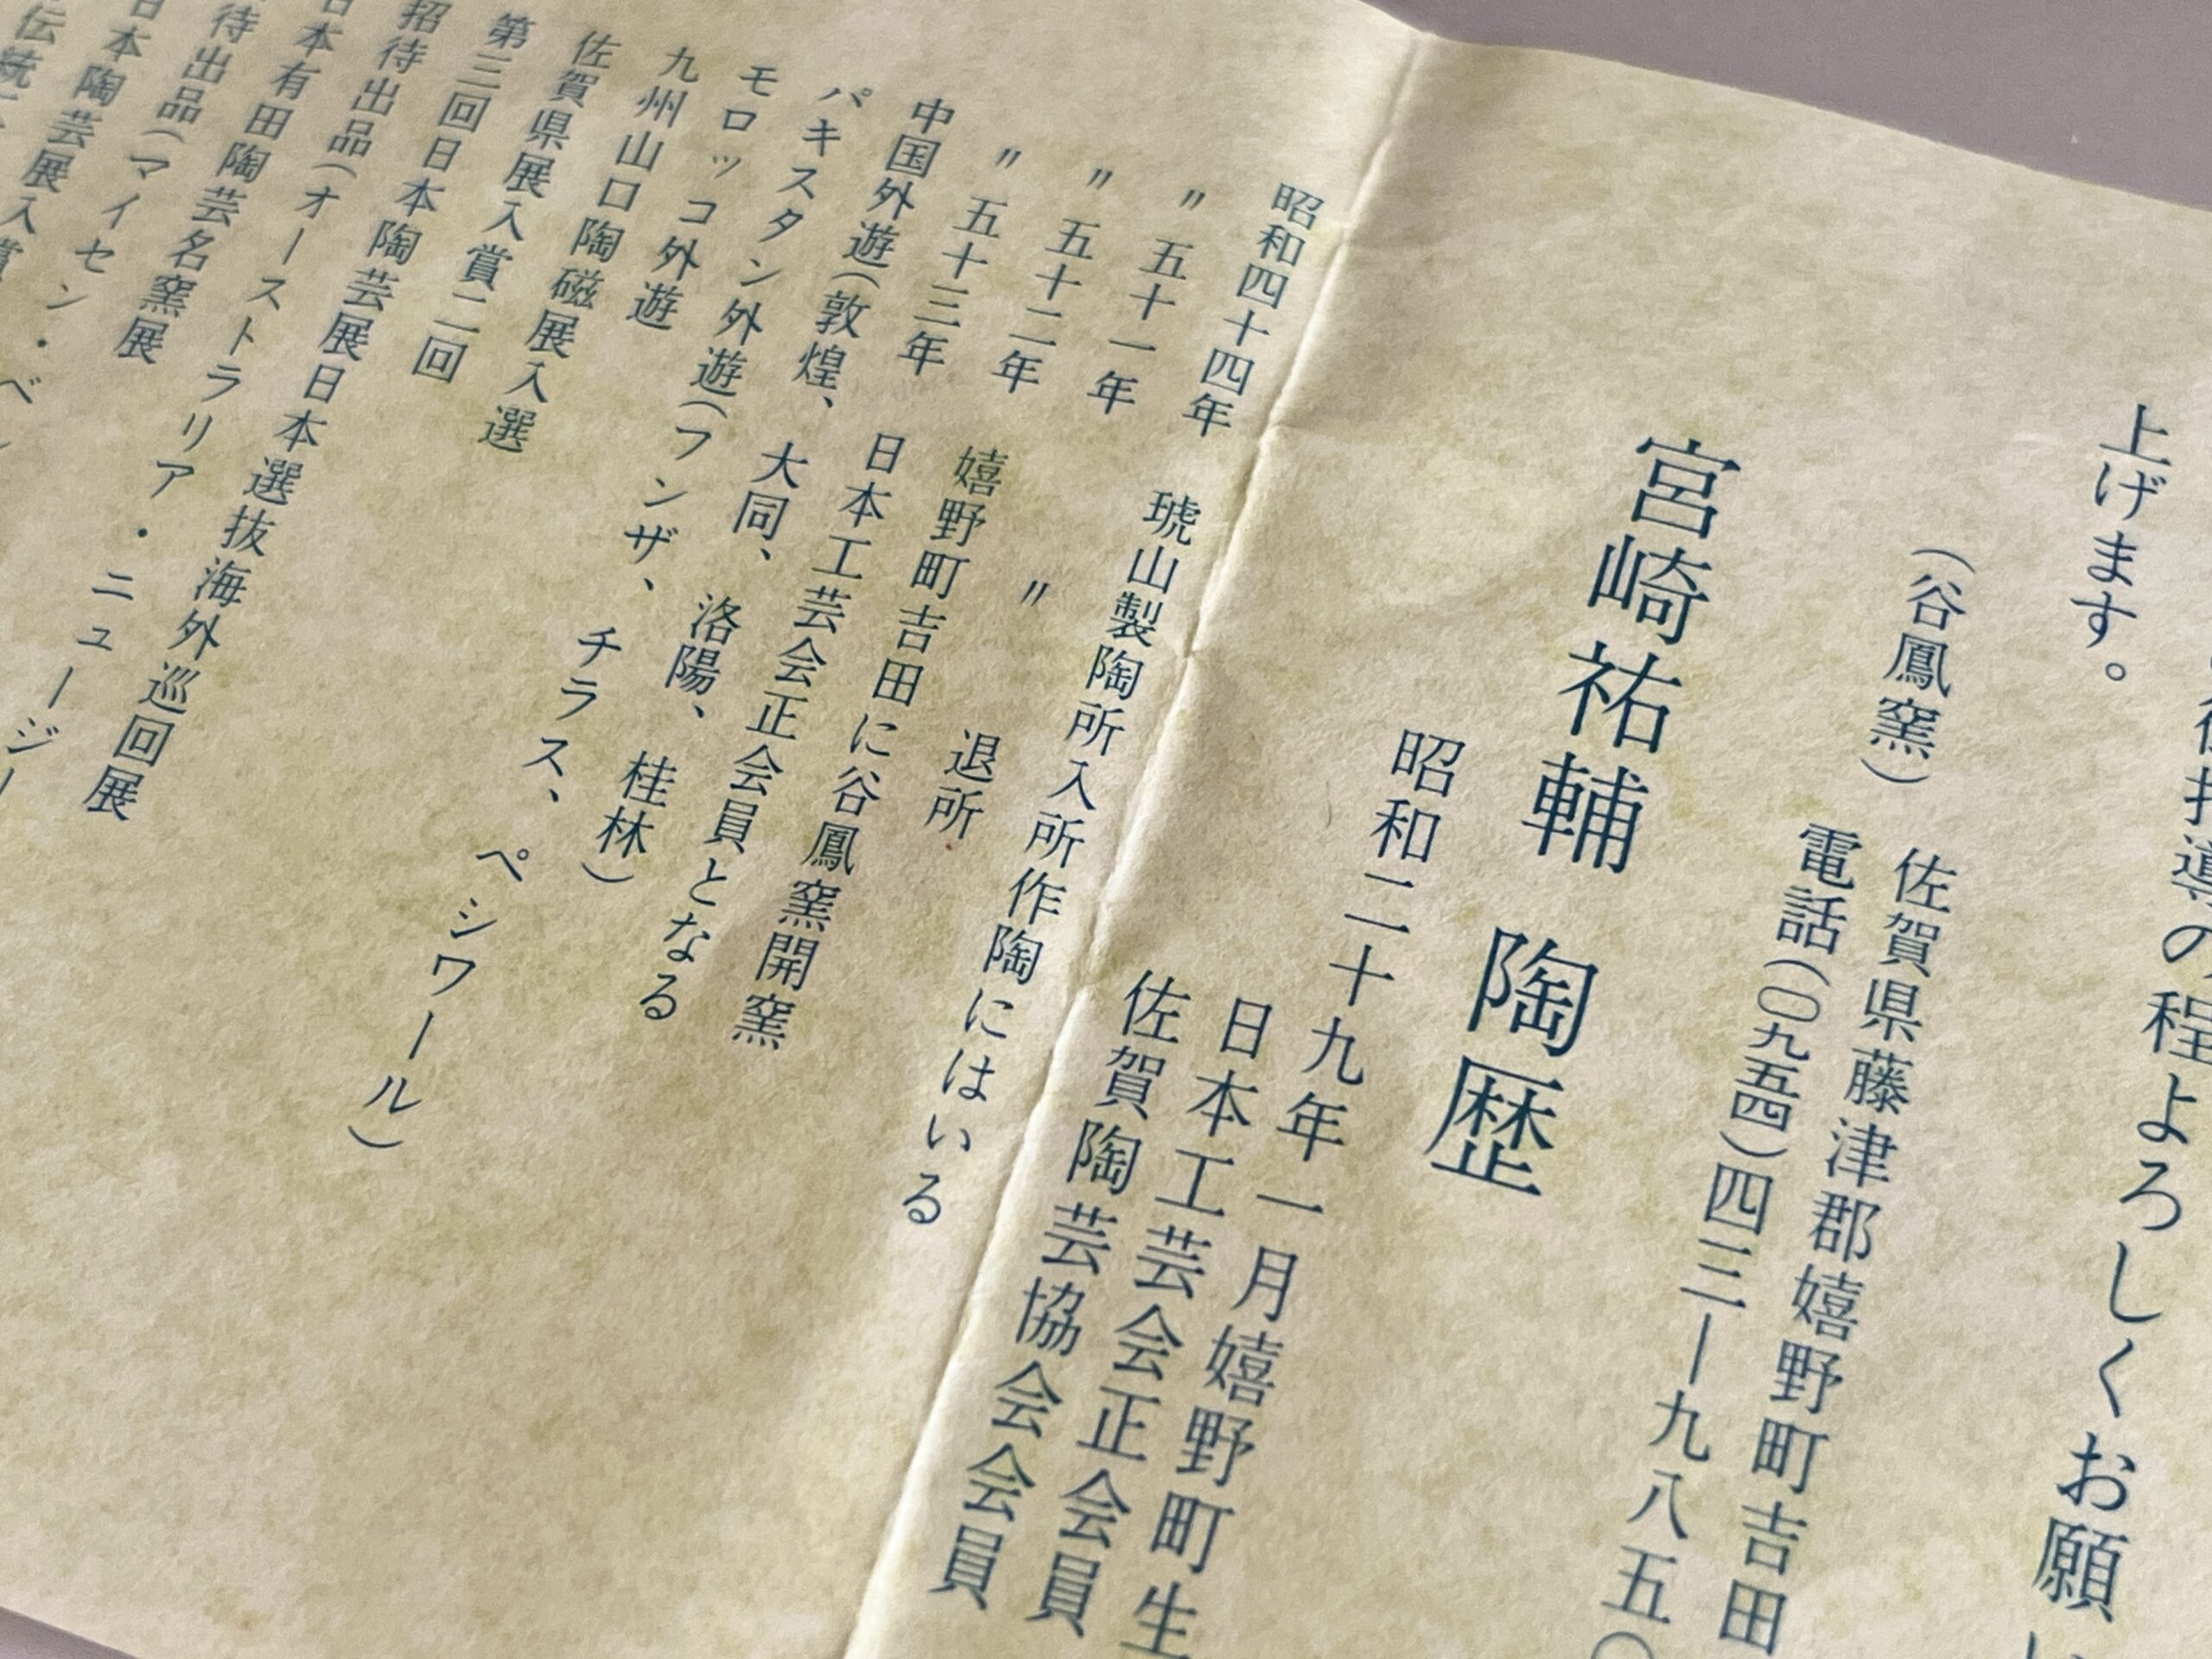 指導の程よろしくお願い
上げます。
(谷鳳窯) 佐賀県藤津郡嬉野町吉田
電話(〇九五四)四三ー九八五〇
宮崎祐輔 陶歴
昭和二十九年一月嬉野町生
日本工芸会正会員
佐賀陶芸協会会員
昭和四十四年 琥山製陶所入所作陶にはいる
〃五十一年 〃 退所
〃五十二年 嬉野町吉田に谷鳳窯開窯
〃五十三年 日本工芸会正会員となる
中国外遊(敦煌、大同、洛陽、桂林)
パキスタン外遊(フンザ、チラス、ペシワール)
モロッコ外遊
九州山口陶磁展入選
佐賀県展入賞二回
第三回日本陶芸展日本選抜海外巡回展
招待出品(オーストラリア・ニュージー
日本有田陶芸名窯展
待出品(マイセン・ベ
日本陶芸展入賞
伝統